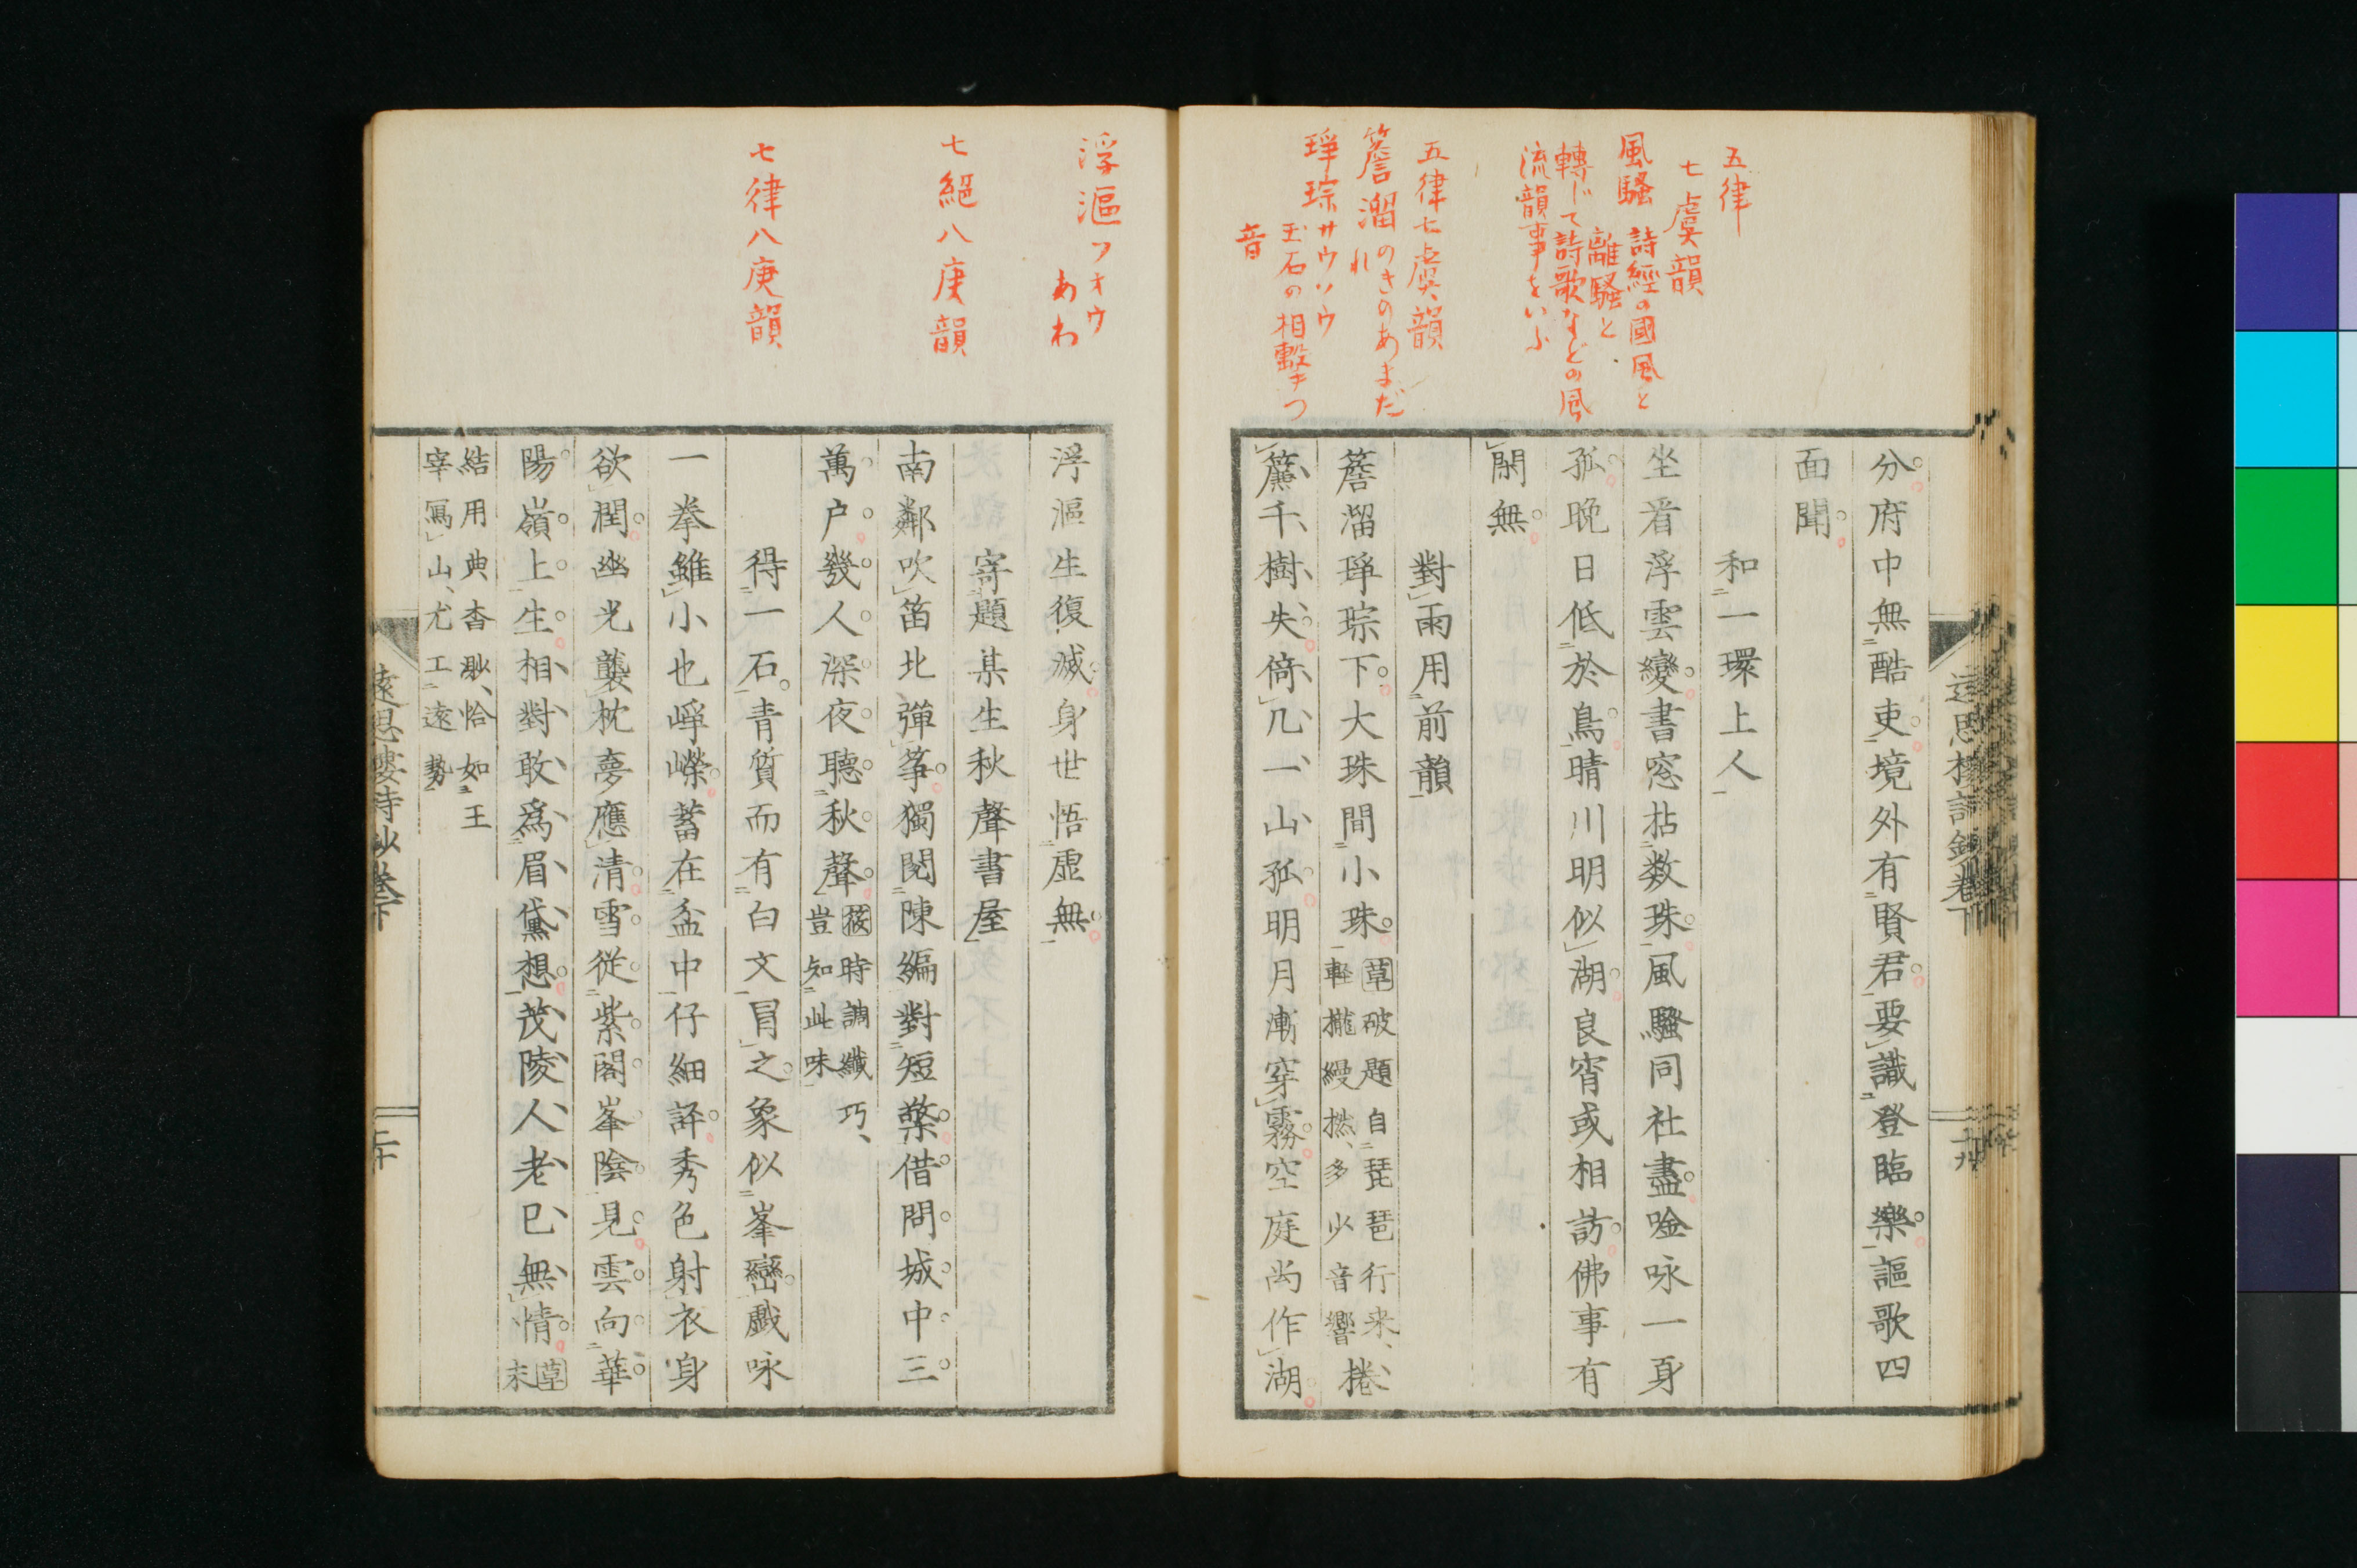 五律
七虞韻
風騷 詩經の國風と
離騷と
轉じて詩歌などの風
流韻事をいふ
五律七虞韻
簷溜のきのあまだ
れ
琤琮サウソウ
玉石の相擊つ
音
遠思樓詩鈔卷下
十九
分府中無酷吏境外有賢君要識登臨樂謳歌四
面聞
和一環上人
坐看浮雲變書窓拈数珠風騷同社盡唫咏一身
孤晚日低於鳥晴川明似湖良宵或相訪佛事有
閑無
對雨用前韻
簷溜琤琮下大珠間小珠草破題自琵琶行来、捲
軽攏縵撚、多少音響
簾千樹失倚几一山孤明月漸穿霧空庭尚作湖
浮漚フオウ
あわ
七絕八庚韻
七律八庚韻
浮漚生復滅身世悟虛無
寄題某生秋聲書屋
南鄰吹笛北彈筝獨閱陳編對短檠借問城中三
萬户幾人深夜聽秋聲筱時調纖巧、
豈知此味
得一石青質而有白文冒之象似峯巒戱咏
一拳雖小也崢嶸蓄在盆中仔細評秀色射衣身
欲潤幽光襲枕夢應清雪從紫閣峯陰見雲向華
陽嶺上生相對敢爲眉黛想茂陵人老已無情草
末
結用典杳渺、恰如王
宰寫山、尤工遠勢
遠思樓詩鈔卷下
二十